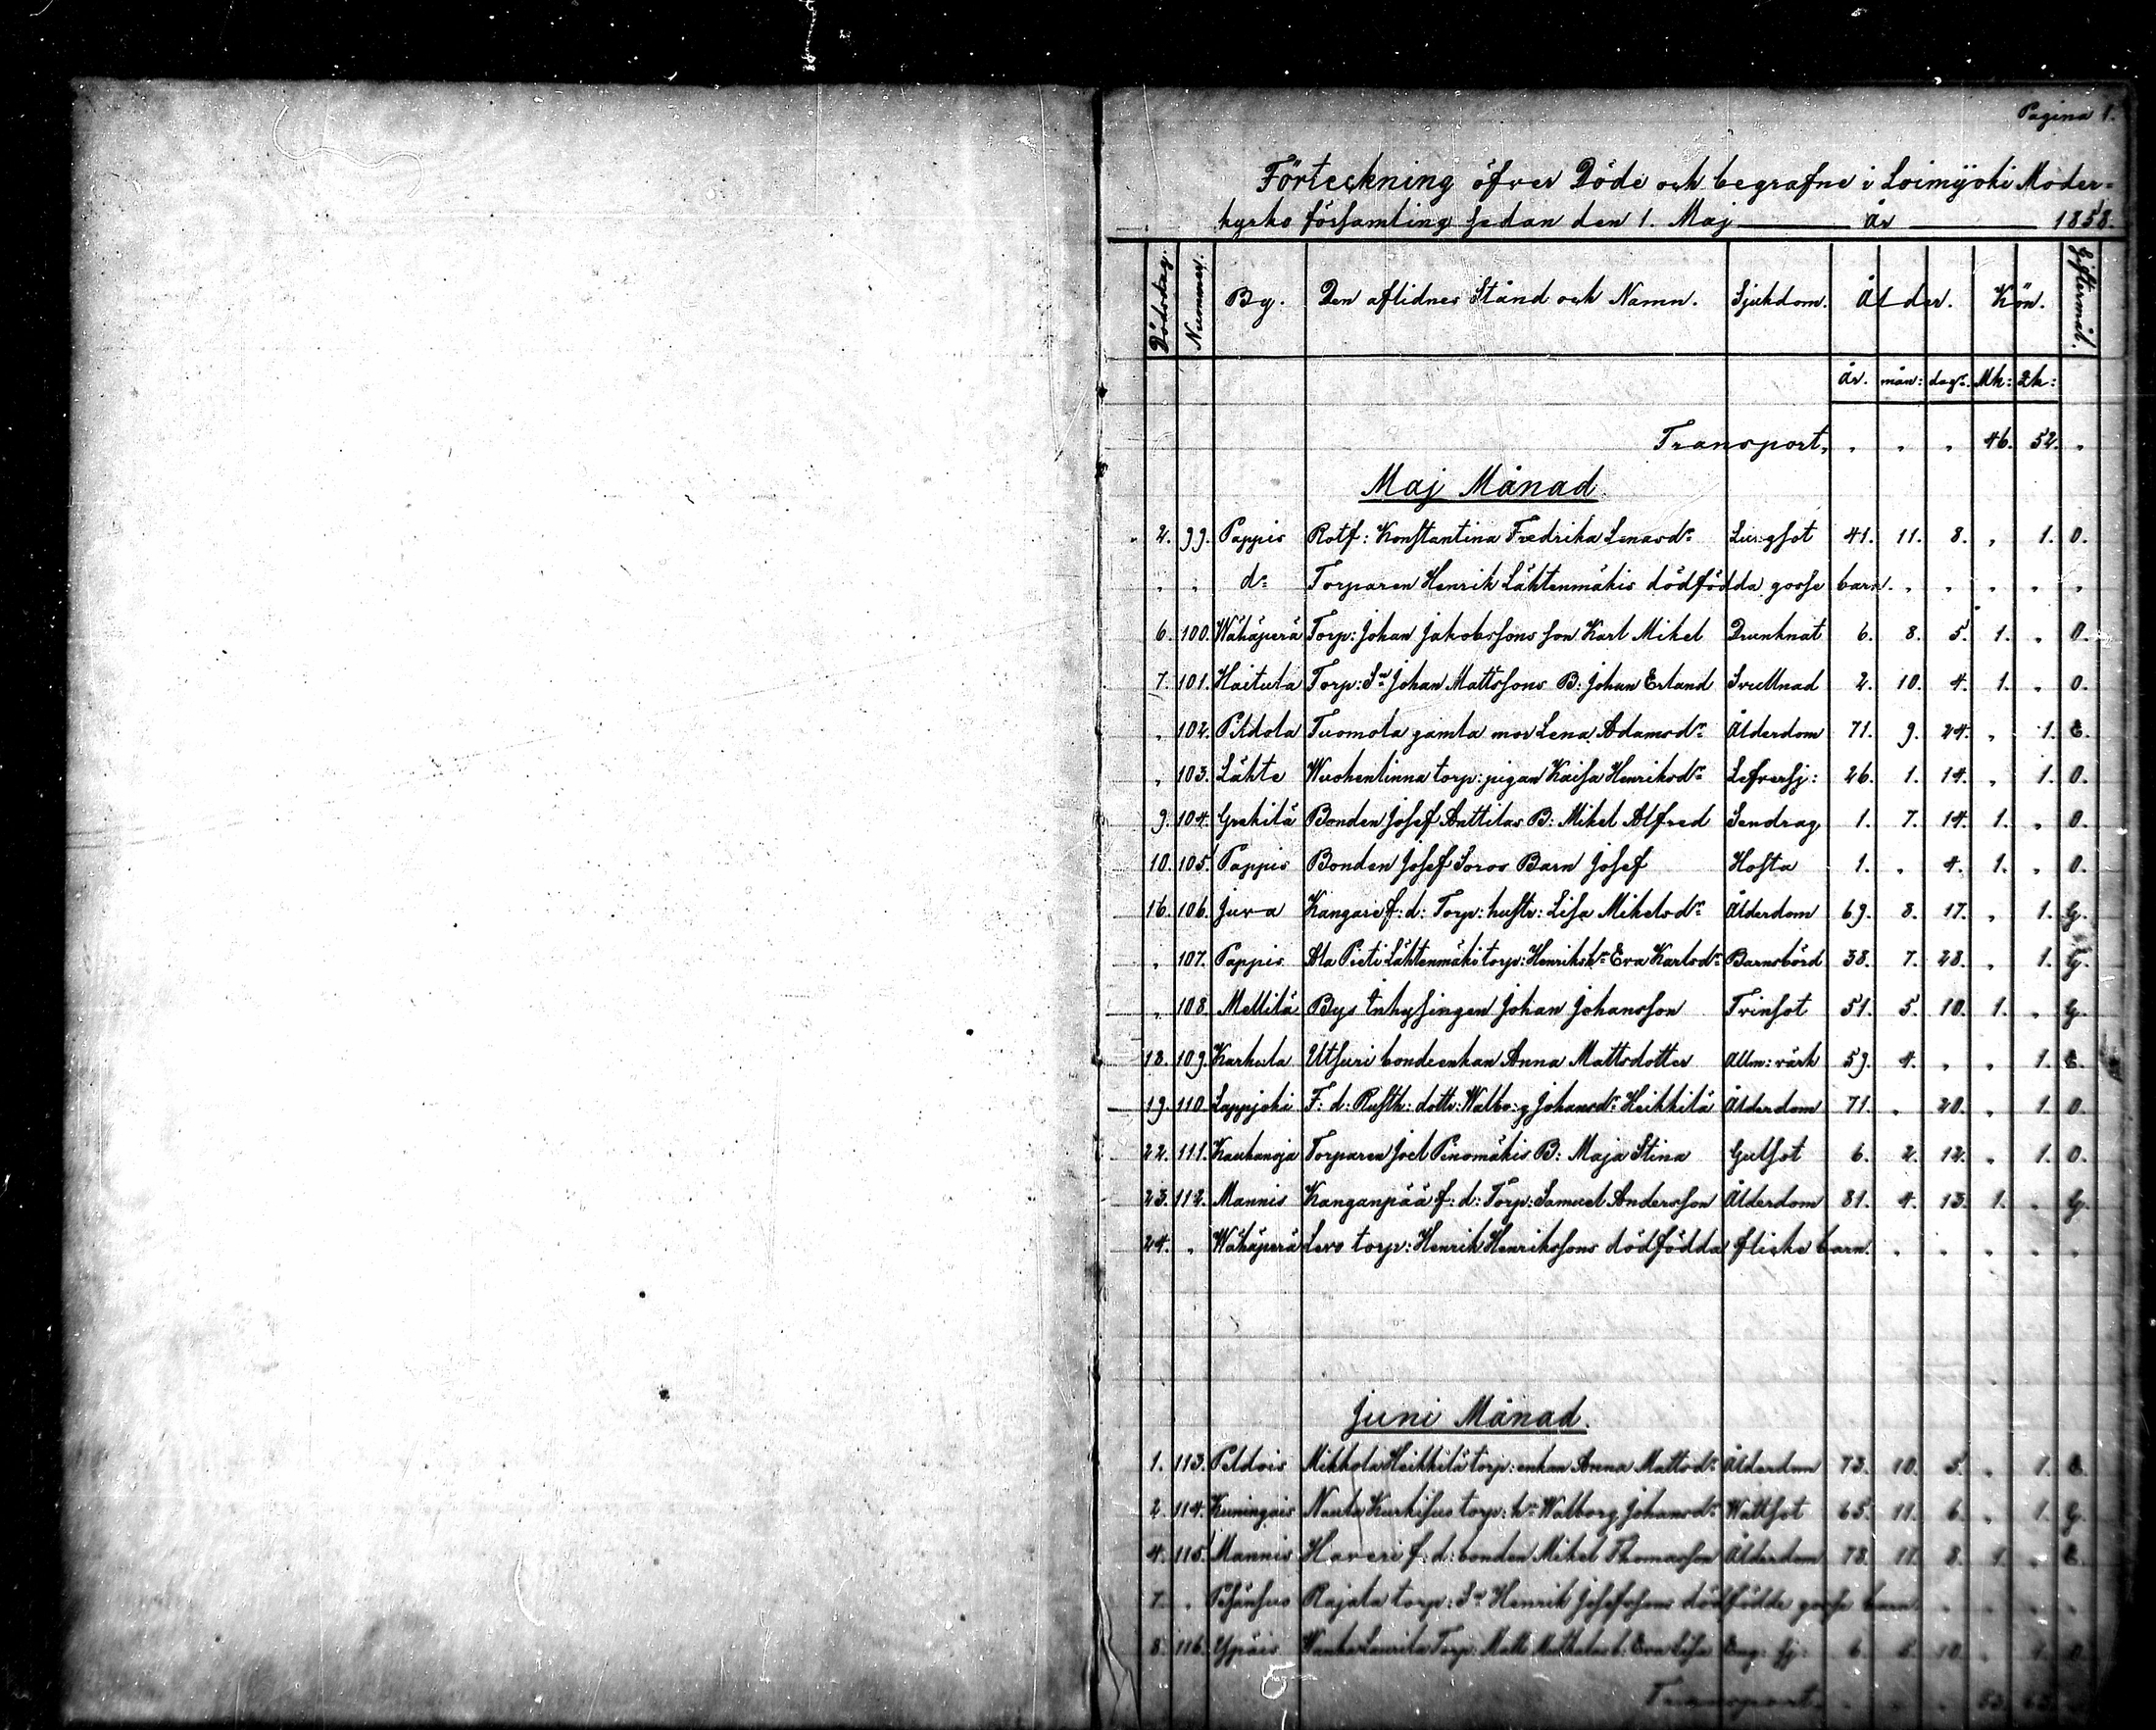 Pagina 1.
Förteckning öfver Döde och begrafne i Loimijoki Moder-
kyrko församling sedan den 1. Maj År 1858.
Dödsdag. Nummer. By. Den aflidnes Stånd och Namn. Sjukdom. Ålder. Kön. Giftermål.
År. mån: dagr. Mk: Qk:
Transport, " " " 46. 52. "
Maj Månad.
2. 99. Pappis Rotf: Konstantina Fredrika Lenasdr Lungsot 41. 11. 8. " 1. O.
" " do Torparen Henrik Lähtenmäkis dödfödda gosse barn. " " " " "
6. 100. Wähäperä Torp: Johan Jakobssons son Karl Mikel Drunknat 6. 8. 5. 1. " O.
7. 101. Haitula Torp: Sn Johan Mattssons B: Johan Erland Svullnad 2. 10. 4. 1. " O.
" 102. Peldola Tuomola gamla mor Lena Adamsdr Ålderdom 71. 9. 24. " 1. E.
" 103. Lähte Wuohenlinna torp: pigan Kaisa Henriksdr Lefversj: 26. 1. 14. " 1. O.
9. 104. Grekilä Bonden Josef Anttilas B: Mikel Alfred Sendrag 1. 7. 14. 1. " O.
10. 105. Pappis Bonden Josef Soros Barn Josef Hosta 1. " 4. 1. " O.
16. 106. Juva Kangare f: d: Torp: hustr: Lisa Mikelsdr Ålderdom 69. 8. 17. " 1. G.
" 107. Pappis Ala Pieti Lähtenmäki torp: Henriks hu Eva Karlsdr Barnsbörd 38. 7. 28. " 1. G.
" 108. Mellilä Bys Inhysingen Johan Johansson Tvinsot 51. 5. 10. 1. " G.
18. 109. Karhula Utsuri bondeenkan Anna Mattsdotter Allm: värk 59. 4. " " 1. E.
19. 110. Lappjoki F: d: Rusth: dottr: Walborg Johansdr Heikkilä Ålderdom 71. " 20. " 1. O.
22. 111. Kauhanoja Torparen Joel Pinomäkis B: Maja Stina Gulsot 6. 2. 12. " 1. O.
23. 112. Mannis Kanganpää f: d: Torp: Samuel Andersson Ålderdom 81. 4. 13. 1. " G.
24. " Wähäperä Levo torp: Henrik Henrikssons dödfödda flicke barn. " " " "
Juni Månad.
1. 113. Peldois Mikkola Heikkilä torp: enkan Anna Mattsdr Ålderdom 73. 10. 5. " 1. E.
2. 114. Kuningais Nauta Kurkisuo torp: hu Walborg Johansdr Wattsot 65. 11. 6. " 1. G.
4. 115. Mannis Haveri f: d: bonden Mikel Thomasson Ålderdom 78. 11. 8. 1. " E.
7. " Rajala torp: Sn Henrik Josefssons dödfödde gosse barn " " "
8. 116. Ypäis Laurila Torp: Matt b: Eva Lisa sj: 6. 5. 10. " 1. O.
Transport. " " "